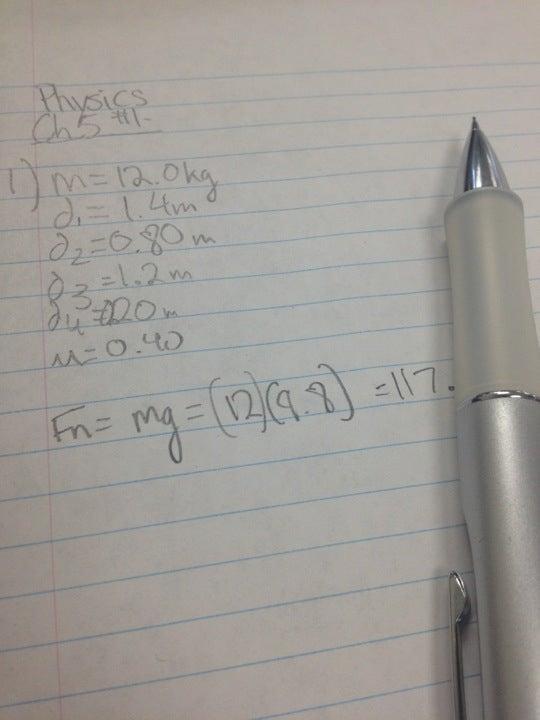 Physics
Ch 5 #1-
1) m = 12.0 kg
d₁ = 1.4 m
d₂ = 0.80 m
d₃ = 1.2 m
d₄ = 20 m
μ = 0.40
Fn = mg = (12)(9.8) = 117.